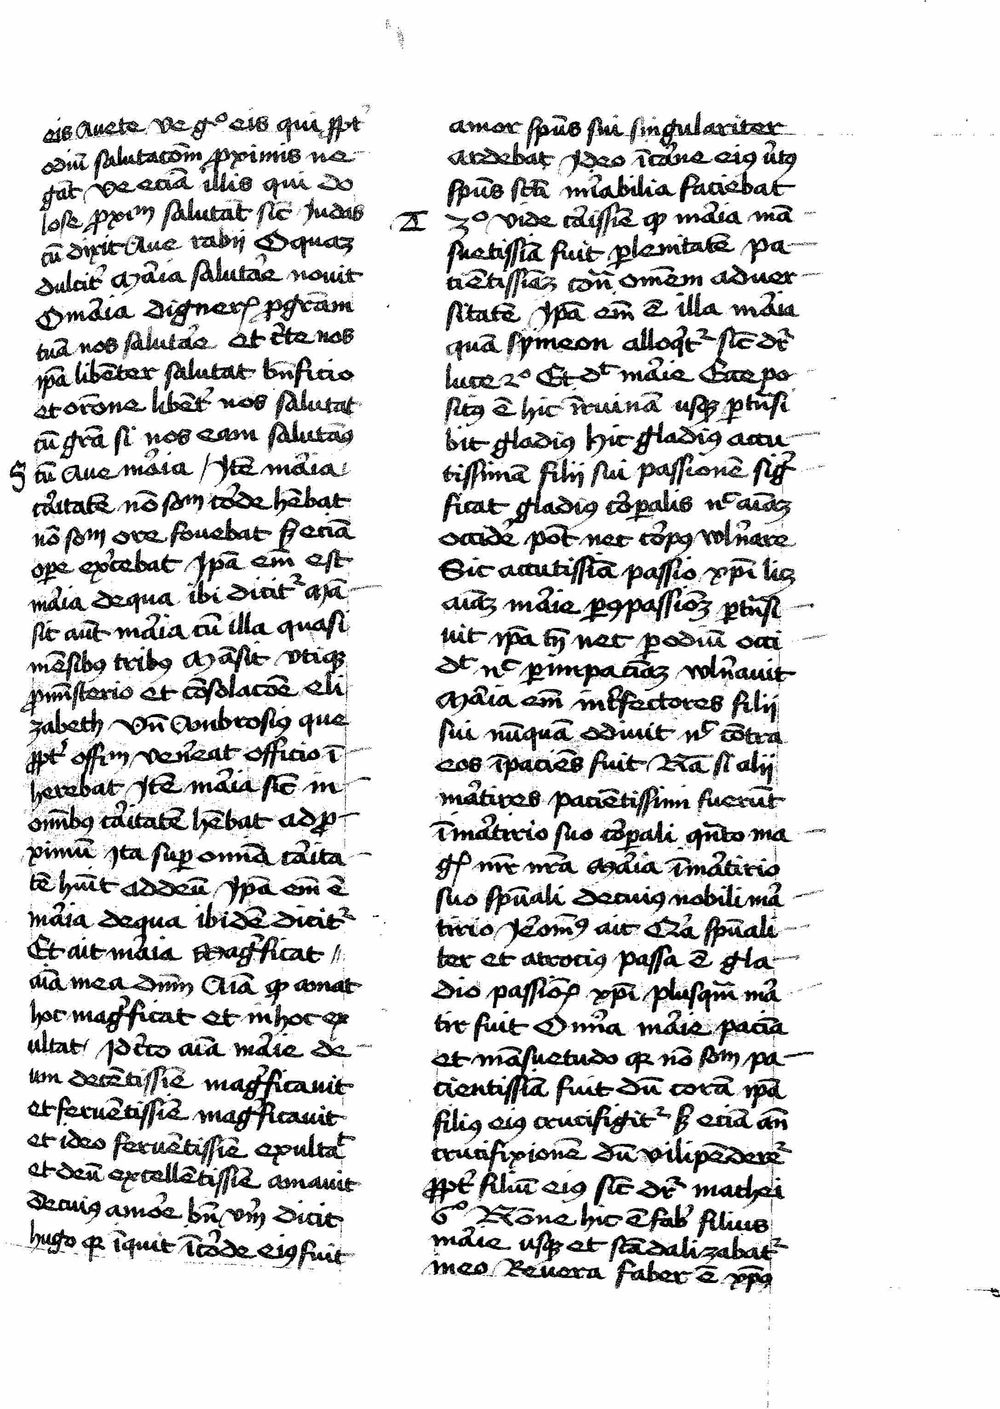 eis Auete ve gº eis qui ꝓpt̾
odiū salutacōm ꝓximis ne-
gāt ve eciā illis qui do
lose ꝓxīm salutāt sic̄ Judas
cū dixit Aue rabij O quaꝫ
dulcit̾ Mͣia salutaͬe nouit
O mͣia dignerꝭ ꝑ grām
tuā nos salutaͬe et c̄te nos
ip̄a libēter salutat bn̄ficio
et orōne libēt̾ nos salutat
cū grā si nos eam salutamꝰ
S cū Aue mͣia / Itē mͣia
cͣitatē nō som coͬde hēbat
nō som ore fouebat sꝫ eciā
oꝑe ex̾cebat Ip̄a em̄ est
mͣia de qua ibi dicitᷣ Mā-
sit aut̄ mͣia cū illa quasi
mēsibꝰ tribꝰ Māsit vtiqꝫ
ꝓ mīsterio et cōsolacōe eli
zabeth Vn̄ Ambrosiꝰ que
ꝓpt̾ offm ven̾eat officio ī-
herebat Itē mͣia sic̄ in
omībꝰ cͣitatē hēbat ad ꝓ-
ximū Ita suꝑ omnia cͣita-
tē hūit ad deū Ip̄a em̄ ē
mͣia de qua ibidē dicitᷣ
Et ait mͣia Magͥficat //
aīa mea dnm̄ Aīa qͥ amat
hoc magͥficat et in hoc ex
ultat / Idc̾co aīa mͣie de-
um decētissīe magͥficauit
et feruētissīe magͥficauit
et ideo feruētissīe exultaᵗ
et deū excellētissīe amauit
de cuiꝰ amoͬe bn̄ vm̄ dicit
hugo qꝛ īquit ī coͬde eiꝰ fuit
amor spūs sui singulariter
ardebat Ideo ī cͣne eiꝰ v̾tꝰ
spūs sc̄ti mͥabilia faciebat
A 3º vide cͣissīe qͥ mͣia mā-
suetissīa fuit ꝑ lenitatē pa-
ciētissīaꝫ con̄ omnem aduer-
sitatē Ip̄a em̄ ē illa mͣia
quā symeon alloqͥtᷣ sic̄ drͬ
luce 2º Et dᵗ mͣie Ecce po-
sitꝰ ē hic ī ruinā usqꝫ ꝑtn̄si
bit gladiꝰ hic gladiꝰ accu-
tissimā filij sui passionē sigͥ
ficat gladiꝰ coͬꝑalis nᶜ aīaꝫ
occide̾ pōt nec coͬpꝰ wln̾are
Sic accutissīa passio xp̄i licꝫ
aīaꝫ mͣie ꝑ ꝯpassiōꝫ ꝑtn̄si-
uit ip̄a tn̄ nec ꝑ odiū occi-
dᵗ nᶜ ꝑ impacīaꝫ wln̾auit
Mͣia em̄ int̾fectores filij
sui nūquā odiuit nᶜ cōtra
eos īpaciēs fuit Nā si alij
mͣtires paciētissimi fuerūt
ī mͣtirio suo coͬꝑali qn̄to ma
gꝭ mr̄ nr̄a Mͣia ī mͣtirio
suo spūali de cuiꝰ nobili mͣ-
tirio Ieͬomꝰ ait Qꝛ spūali-
ter et atrociꝰ passa ē gla-
dio passiōꝭ xp̄i plusqͣm mͣ
tir fuit O mͥa mͣie pacīa
et māsuetudo qꝛ nō som pa-
cientissīa fuit dū corā ip̄a
filiꝰ eiꝰ crucifigitᷣ sꝫ eciā añ
crucifixionē dū vilipēdereᷣ
ꝓpt̾ filiū eiꝰ sic̄ drͬ mathei
6º None hic ē fabͬ filius
mͣie usqꝫ et scādalizabatᷣ
in eo Reuera faber ē xp̄ꝰ